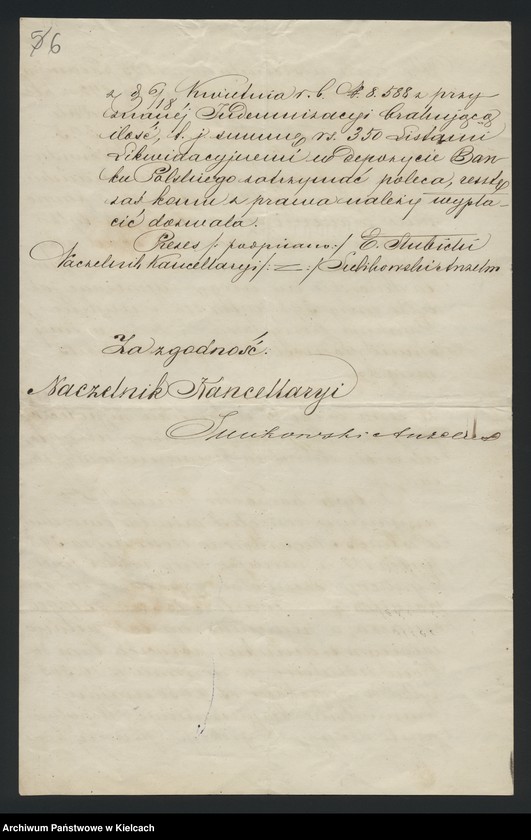 76
z d. 6/18 Kwietnia r. b. N. 8.588 z przy
znanéj Indemnizacyi brakującą
ilość, t. j. summę rs. 350 Listami
Likwidacyjnemi w depozycie Ban-
ku Polskiego zatrzymać poleca, resztę
zaś komu z prawa należy wypła-
cić dozwala.
Prezes /: podpisano :/ E.
Naczelnik Kancellaryi /: = :/ Anzelm
Za zgodność.
Naczelnik Kancellaryi
Anzelm
Archiwum Państwowe w Kielcach